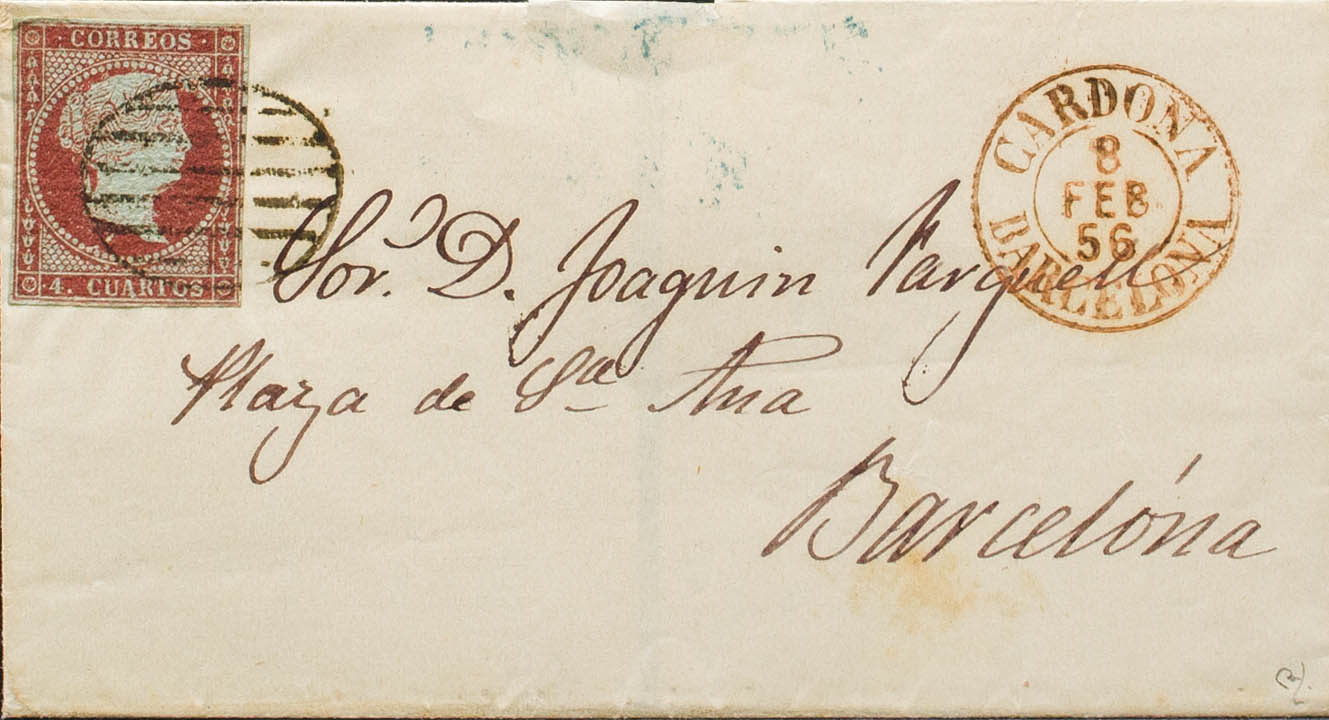 CORREOS
4. CUARTOS
CARDONA
8
FEB
56
BARCELONA
Sor. D. Joaquin
Plaza de Sta Ana
Barcelóna